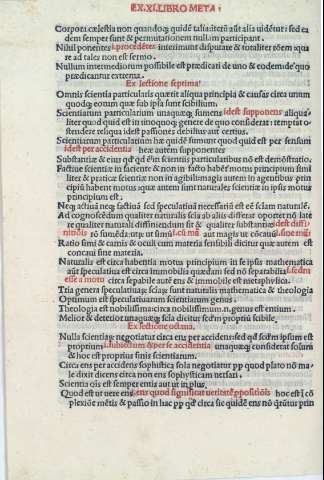 EX.XI.LIBRO META
Corpora cælestia non quandoqꝫ quidē taliā aūt alia uidētur: sed ea
dem semper sunt & permutationem nullam participant.
Nihil ponentes i. procedētes interimunt disputare & totaliter rōem
re ad tales non est sermo.
Nullum intermediorum possibile est prædicati de uno & eodem
prædicantur extrema.
Ex lectione septima
Omnis scientia particularis quærit aliqua principia & causas circa unum
quodqꝫ eorum quæ sub ipsa sunt scibilium.
Scientiarum particularium unaquæqꝫ sumens idest supponens aliqua
liter quod quid est in unoquoqꝫ genere de quo considerat: temptat o
stendere reliqua idest passiones debilius aut certius.
Scientiarum particularium hæ quidē sumunt quod quid est per sensum
idest per accidentia hæ autem supponentes
Substantiæ & eius qd̄ qd̄ ē in scientiis particularibus nō est demōstratio.
Factiuæ scientiæ in faciente & non in facto habēt motus principium simi
liter & practicæ scientiæ non in agibilis magis autem in agentibus prin
cipiū habent motus quæ autem sunt naturales scientiæ in ipsis motus
principium est;
Neqꝫ actiuā neqꝫ factiuā sed speculatiuā necessariū est eē sciam naturalē.
Ad cognoscēdum qualiter naturalis scīa ab aliis differat oportet nō late
re qualiter naturali diffiniendum sit & qualiter substantiæ idest diffi
nitionis rō sumēda: utrū ut simū aut magis ut cōcauū
Ratio simi & camis & oculi cum materia sensibili dicitur quæ autem est
concaui sine materia.
Naturalis est circa habentia motus principium in se ipsis mathematica
aūt speculatiua est circa immobilia quædam sed nō separabilia
esse a motu circa sepabile autē ens & immobile est metaphysica.
Tria genera speculatiuaꝝ sciaꝝ sunt naturalis mathematica & theologia
Optimum est speculatiuarum scientiarum genus.
Theologia est nobilissima: circa nobilissimum.n. genus est entium.
Melior & deterior unaquæqꝫ scīa dicitur secdm propriū scibile.
Ex lectione octaua.
Nulla scientiaꝝ negotiatur circa ens per accidens: sed qd̄ secdm ipsum ē
proprium i. subiectum & per se accidentia unaquæqꝫ considerat solum
& hoc est proprius finis scientiarum.
Circa ens per accidens sophistica sola negotiatur pp quod plato nō ma
le dixit dicens circa non ens sophysticam uersari.
Scientia oīs est semper entis aut ut in plus.
Quod est ut uere ens ens quod significat ueritatē ppositiōis hoc est ī cō
plexiōe mētis & passio in hac pp qd̄ circa sic quidē ens nō qrūtur prin